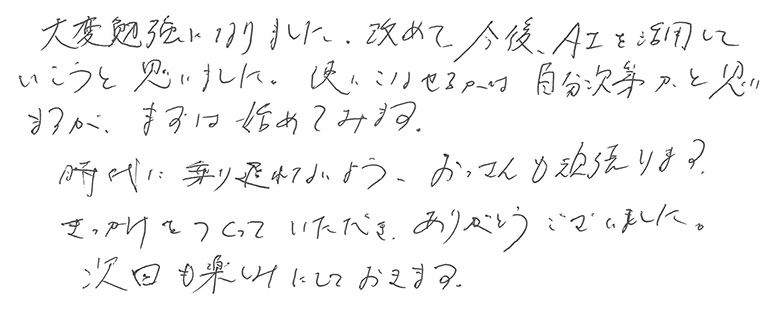 大変勉強になりました。改めて今後、AIを活用して
いこうと思いました。使いこなせるかは自分次第かと思い
ますが、まずは始めてみます。
時代に乗り遅れないよう、おっさんも頑張ります。
きっかけをつくっていただき、ありがとうございました。
次回も楽しみにしております。